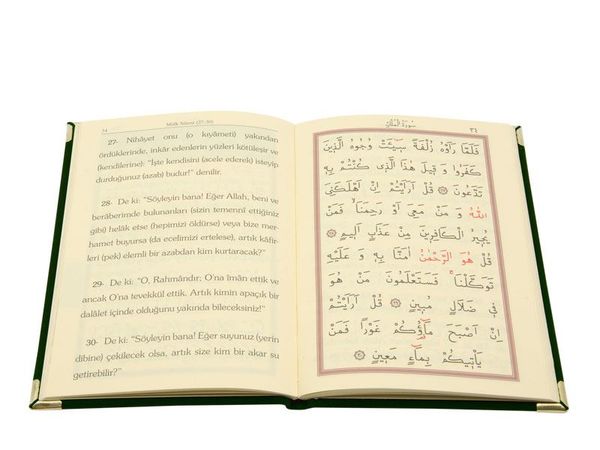 34
Mülk Sûresi (27-30)
27- Nihâyet onu (o kıyâmeti) yakından
ördüklerinde, inkâr edenlerin yüzleri kötüleşir ve
(kendilerine): “İşte kendisini (acele ederek) isteyip
durduğunuz (azab) budur!” denilir.
28- De ki: “Söyleyin bana! Eğer Allah, beni ve
berâberimde bulunanları (sizin temennî ettiğiniz
gibi) helâk etse (hepimizi öldürse) veya bize mer-
hamet buyursa (da ecelimizi ertelese), artık kâfir-
leri (pek) elemli bir azabdan kim kurtaracak?”
29- De ki: “O, Rahmândır; O'na îman ettik ve
ancak O'na tevekkül ettik. Artık kimin apaçık bir
dalâlet içinde olduğunu yakında bileceksiniz!”
30- De ki: “Söyleyin bana! Eğer suyunuz (yerin
dibine) çekilecek olsa, artık size kim bir akar su
getirebilir?”
سُورَةُ الْمُلْكِ
٣٤
فَلَمَّا رَاَوْهُ زُلْفَةً سٖٓيـَٔتْ وُجُوهُ الَّذٖينَ
كَفَرُوا وَ قٖيلَ هٰذَا الَّذٖى كُنْتُمْ بِهٖ
تَدَّعُونَ ۝ قُلْ اَرَاَيْتُمْ اِنْ اَهْلَكَنِىَ
اللّٰهُ وَ مَنْ مَعِىَ اَوْ رَحِمَنَا ۙ فَمَنْ
يُجٖيرُ الْكَافِرٖينَ مِنْ عَذَابٍ اَلٖيمٍ ۝
قُلْ هُوَ الرَّحْمٰنُ اٰمَنَّا بِهٖ وَ عَلَيْهِ
تَوَكَّلْنَا ۚ فَسَتَعْلَمُونَ مَنْ هُوَ
فٖى ضَلَالٍ مُبٖينٍ ۝ قُلْ اَرَاَيْتُمْ
اِنْ اَصْبَحَ مَٓاؤُكُمْ غَوْرًا فَمَنْ
يَاْتٖيكُمْ بِمَٓاءٍ مَعٖينٍ ۝